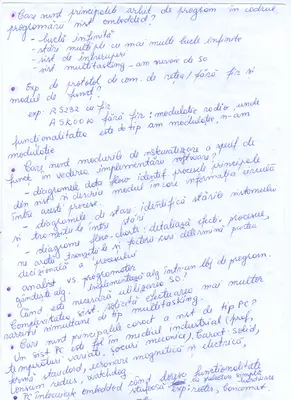 • Care sunt principalele arhit. de program în cadrul
programării sist embedded?
- buclă infinită
- stări multiple cu mai multe bucle infinite
- sist de întreruperi
- sist multitasking - am nevoie de SO
• Exp de protocol de com. de rețea/fără fir și
modul de funcț?
exp. RS232 cu fir
ASK OOK fără fir: modulație radio, unde
funcționalitatea este de tip am modulație, n-am
modulație
• Care sunt modurile de a specif de
funcț în vederea implementării software?
- diagramele data flow identif procesele principale
din sist și descriu modul în care informația circulă
între aceste procese.
- diagramele de stare: identifică stările sistemului
și tranzițiile între stări
- diagrame flow-chart: detaliază efect. procesul,
ne arată tranzițiile și factorii care determină partea
decizională a procesului
• analist vs. programator
gândește alg implementează alg într-un lbj de program.
• Când este necesară utilizarea SO?
Complexitatea sist. solicită efectuarea mai multor
sarcini simultane de tip multitasking.
• Care sunt principalele caract a sist de tip PC?
Un sist PC este fol în mediul industrial (praf,
temperaturi variate, șocuri mecanice), caract: solid,
formă standard, ecranare magnetică și electrică,
consum redus, watchdog
• PC înlocuiește embedded când funcționalitatea